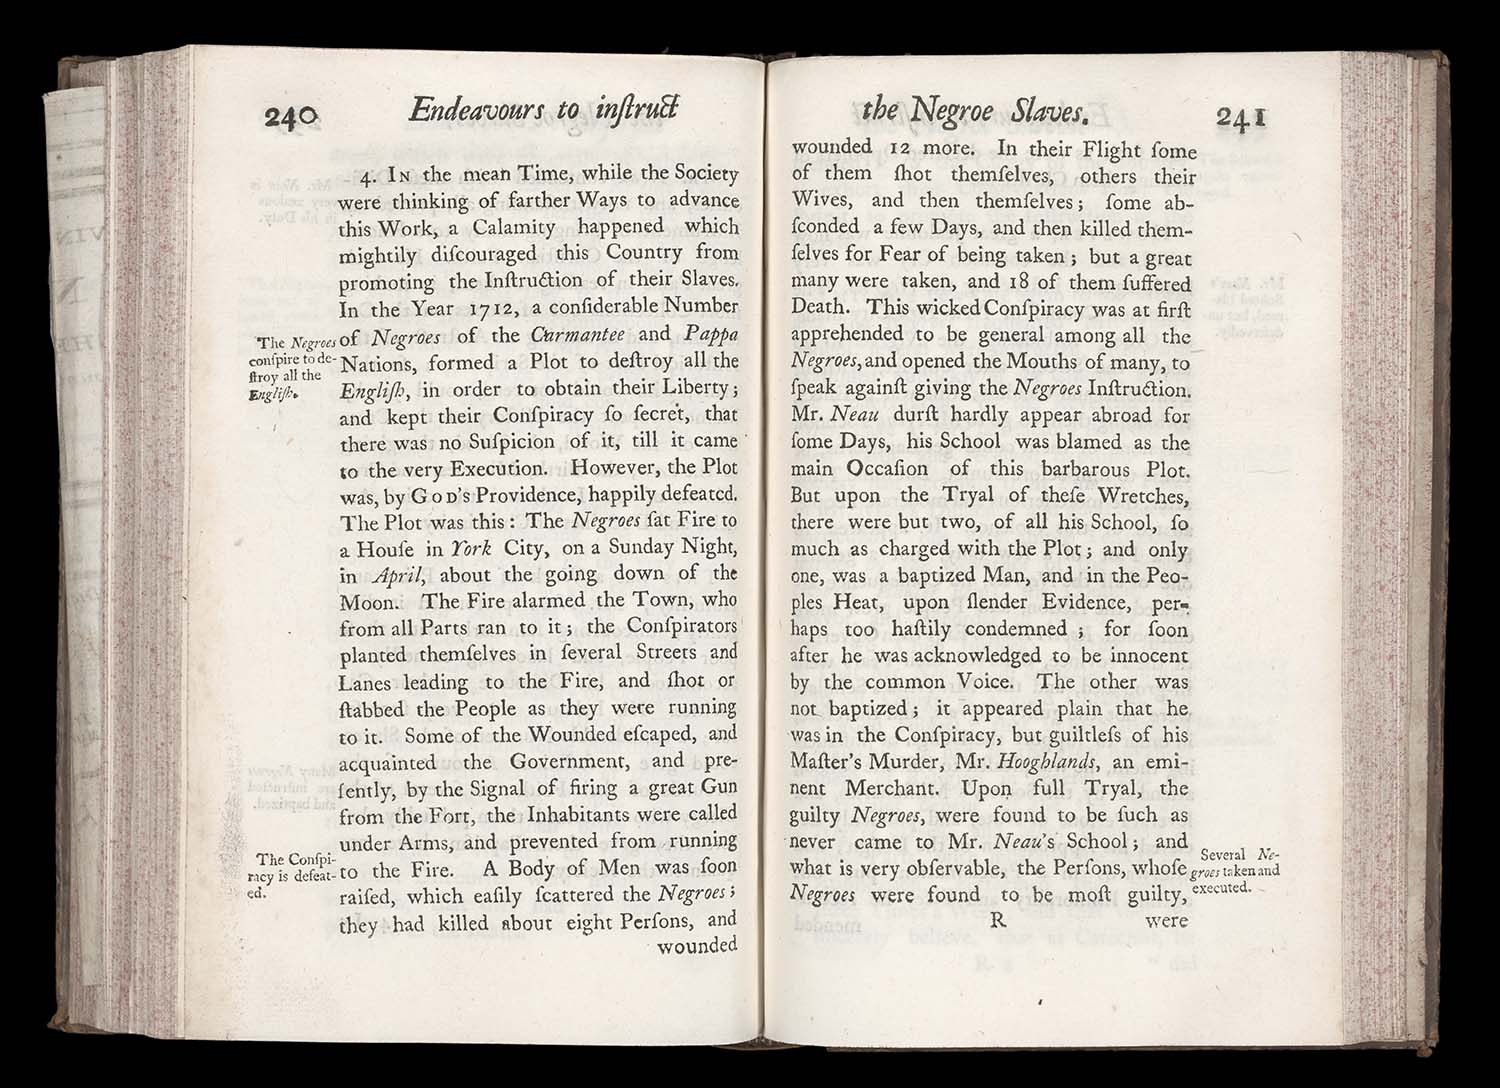 240
Endeavours to inſtruct
4. IN the mean Time, while the Society
were thinking of farther Ways to advance
this Work, a Calamity happened which
mightily diſcouraged this Country from
promoting the Inſtruction of their Slaves.
In the Year 1712, a conſiderable Number
of Negroes of the Carmantee and Pappa
Nations, formed a Plot to deſtroy all the
Engliſh, in order to obtain their Liberty;
and kept their Conſpiracy ſo ſecret, that
there was no Suſpicion of it, till it came
to the very Execution. However, the Plot
was, by GOD's Providence, happily defeated.
The Plot was this: The Negroes ſat Fire to
a Houſe in York City, on a Sunday Night,
in April, about the going down of the
Moon. The Fire alarmed the Town, who
from all Parts ran to it; the Conſpirators
planted themſelves in ſeveral Streets and
Lanes leading to the Fire, and ſhot or
ſtabbed the People as they were running
to it. Some of the Wounded eſcaped, and
acquainted the Government, and pre-
ſently, by the Signal of firing a great Gun
from the Fort, the Inhabitants were called
under Arms, and prevented from running
to the Fire. A Body of Men was ſoon
raiſed, which eaſily ſcattered the Negroes;
they had killed about eight Perſons, and
wounded
The Negroes
conſpire to de-
ſtroy all the
Engliſh.
The Conſpi-
racy is defeat-
ed.
the Negroe Slaves.
241
wounded 12 more. In their Flight ſome
of them ſhot themſelves, others their
Wives, and then themſelves; ſome ab-
ſconded a few Days, and then killed them-
ſelves for Fear of being taken; but a great
many were taken, and 18 of them ſuffered
Death. This wicked Conſpiracy was at firſt
apprehended to be general among all the
Negroes, and opened the Mouths of many, to
ſpeak againſt giving the Negroes Inſtruction.
Mr. Neau durſt hardly appear abroad for
ſome Days, his School was blamed as the
main Occaſion of this barbarous Plot.
But upon the Tryal of theſe Wretches,
there were but two, of all his School, ſo
much as charged with the Plot; and only
one, was a baptized Man, and in the Peo-
ples Heat, upon ſlender Evidence, per-
haps too haſtily condemned; for ſoon
after he was acknowledged to be innocent
by the common Voice. The other was
not baptized; it appeared plain that he
was in the Conſpiracy, but guiltleſs of his
Maſter's Murder, Mr. Hooghlands, an emi-
nent Merchant. Upon full Tryal, the
guilty Negroes, were found to be ſuch as
never came to Mr. Neau's School; and
what is very obſervable, the Perſons, whoſe
Negroes were found to be moſt guilty,
R were
Several Ne-
groes taken and
executed.